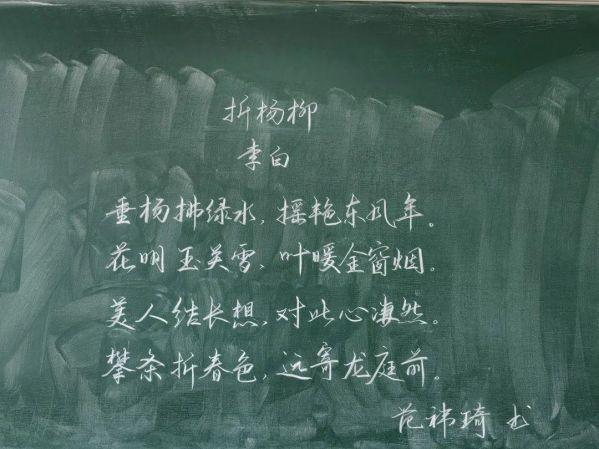 折杨柳
李白
垂杨拂绿水,摇艳东风年。
花明玉关雪,叶暖金窗烟。
美人结长想,对此心凄然。
攀条折春色,远寄龙庭前。
范祎琦 书